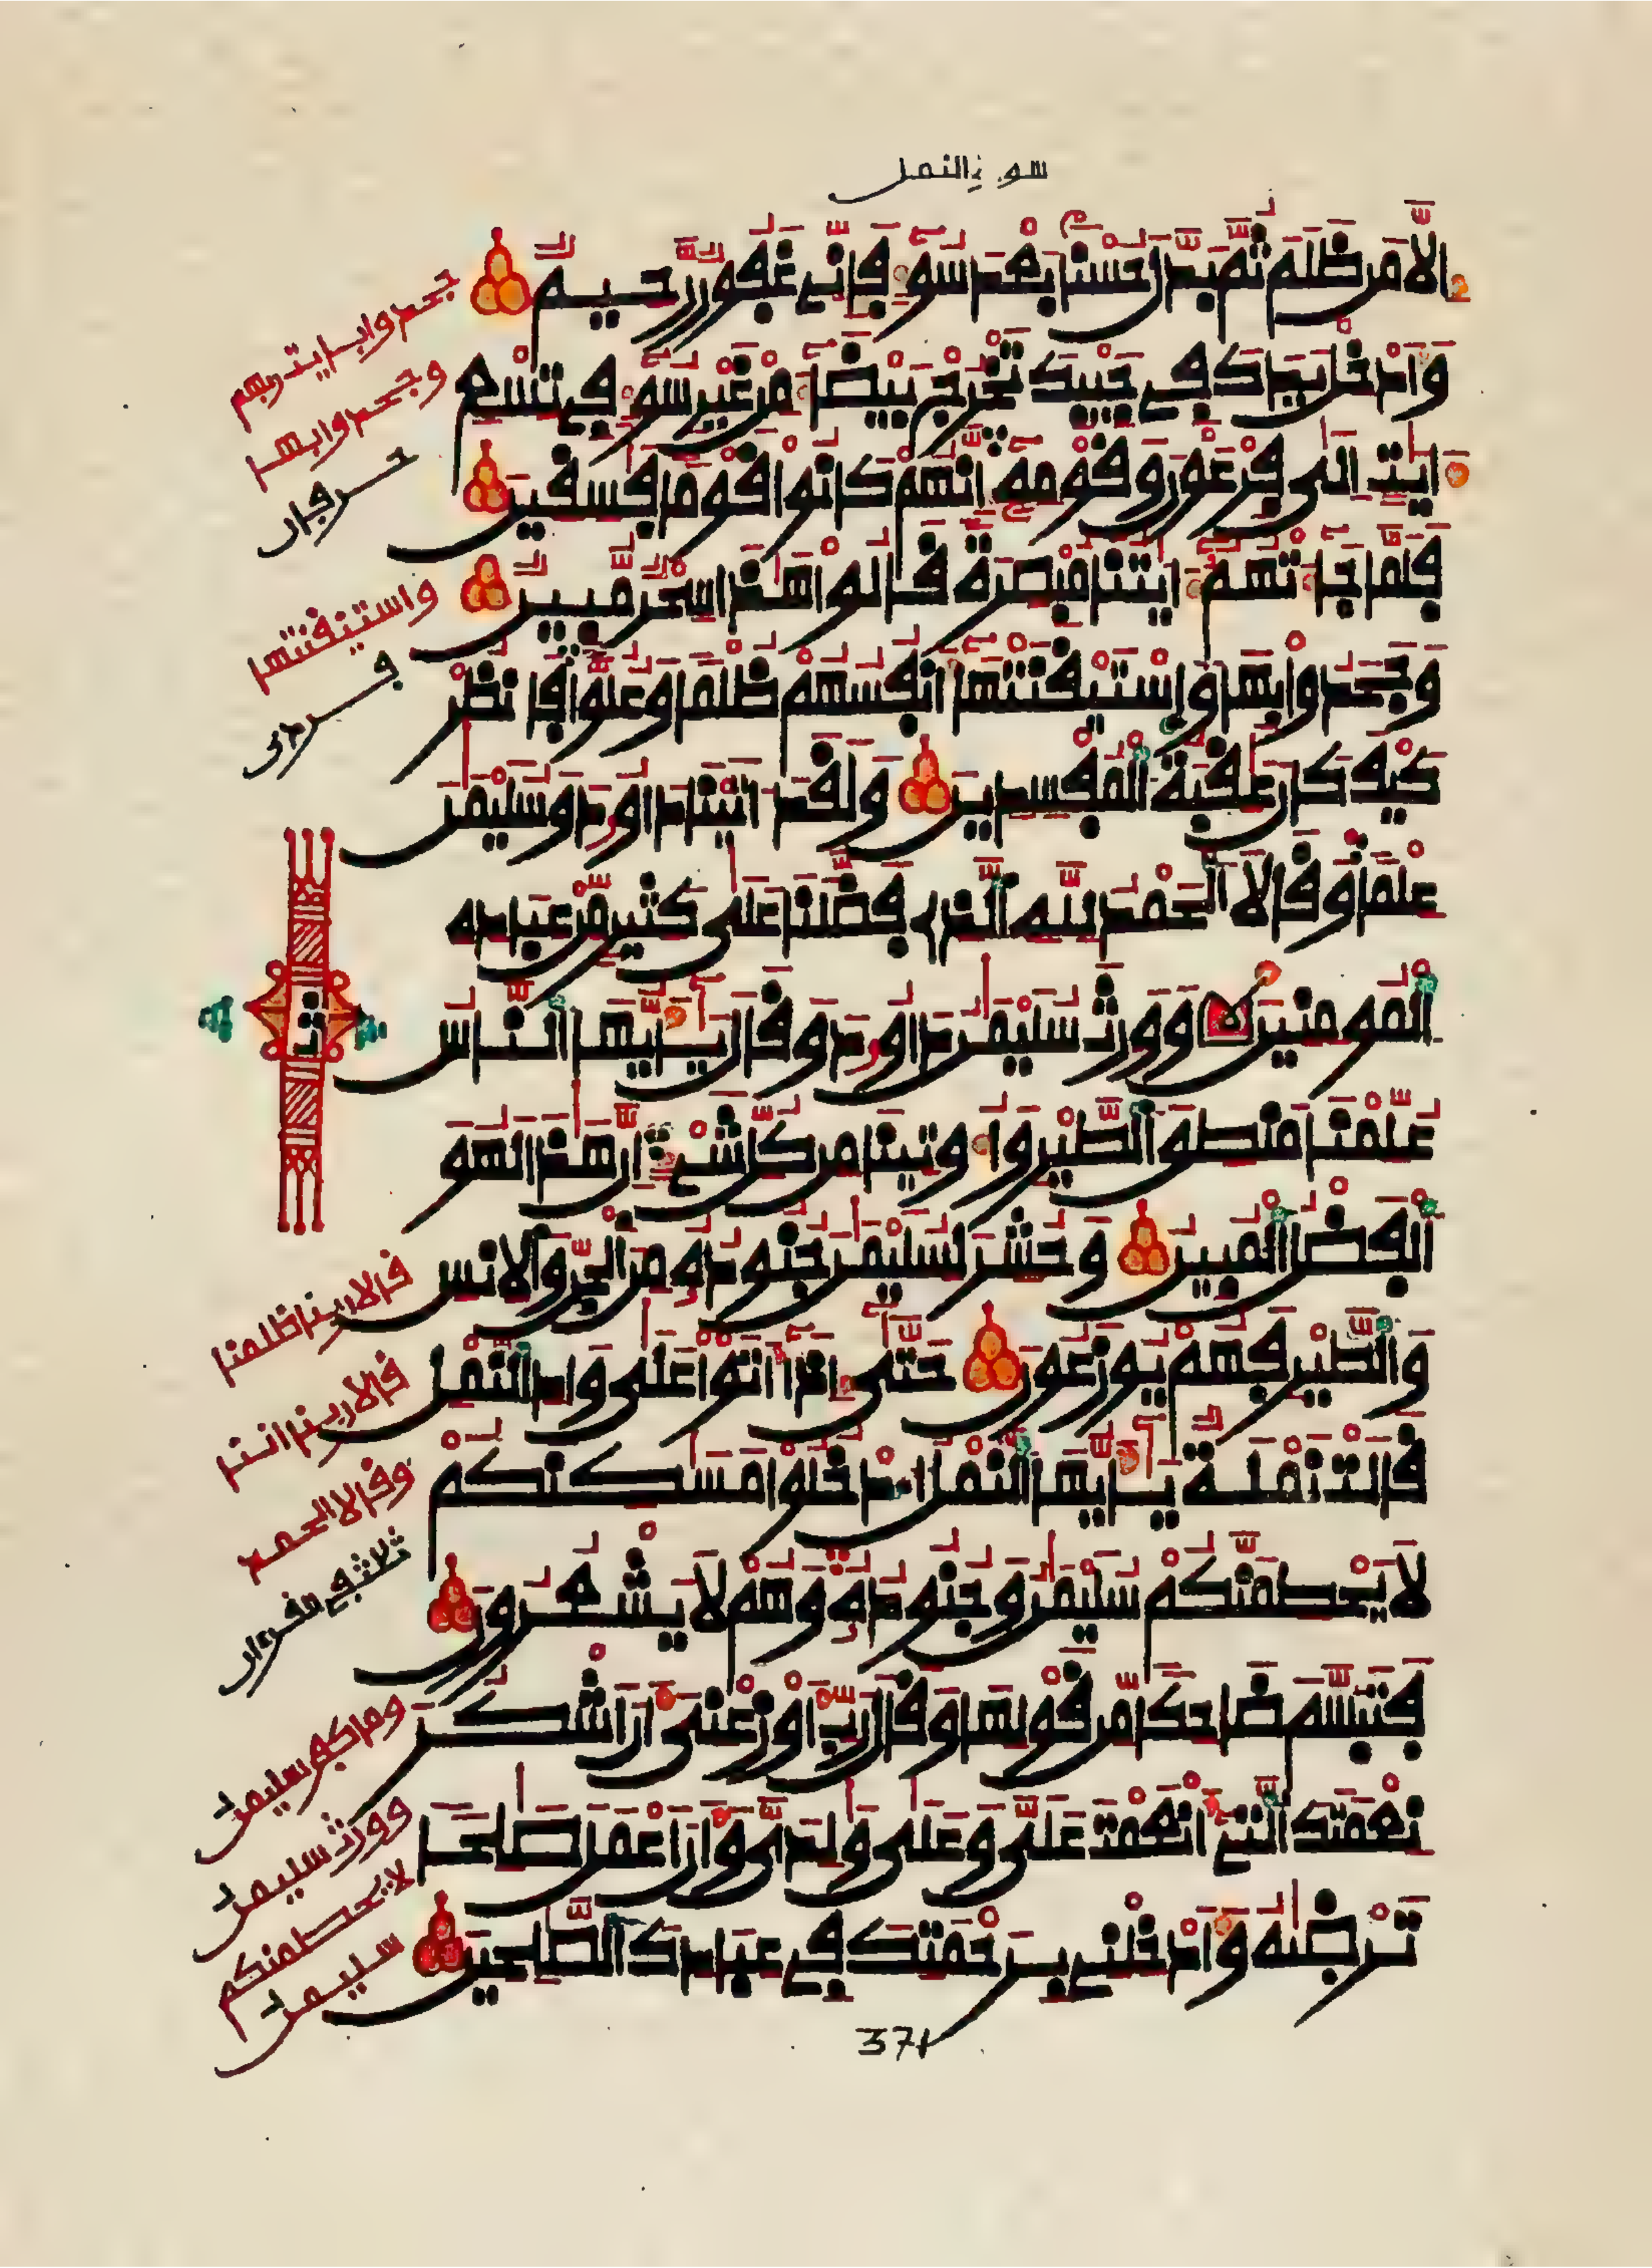 سورة النمل
الا من ظلم ثم بدل حسنا بعد سوء فإني غفور رحيم
وأدخل يدك في جيبك تخرج بيضاء من غير سوء في تسع
ءايت إلى فرعون وقومه إنهم كانوا قوما فسقين
فلما جاءتهم ءايتنا مبصرة قالوا هذا سحر مبين
وجحدوا بها واستيقنتها أنفسهم ظلما وعلوا فانظر
كيف كان عقبة المفسدين ولقد ءاتينا داود وسليمن
علما وقالا الحمد لله الذي فضلنا على كثير من عباده
المومنين وورث سليمن داود وقال يأيها الناس
علمنا منطق الطير وأوتينا من كل شيء إن هذا لهو
الفضل المبين وحشر لسليمن جنوده من الجن والانس
والطير فهم يوزعون حتى إذا أتوا على واد النمل
قالت نملة يأيها النمل ادخلوا مسكنكم
لا يحطمنكم سليمن وجنوده وهم لا يشعرون
فتبسم ضاحكا من قولها وقال رب أوزعني أن اشكر
نعمتك التي أنعمت علي وعلى ولدي وأن اعمل صلحا
ترضيه وأدخلني برحمتك في عبادك الصلحين
جحدوا بايت ربهم
وجحدوا بها
حرفان
واستيقنتها
فردي
ثمن
قالا ربنا ظلمنا
قالا ربنا اننا
وقالا الحمد
ثلاثة في القرءان
وما كفر سليمن
وورث سليمن
لا يحطمنكم
سليمن
371